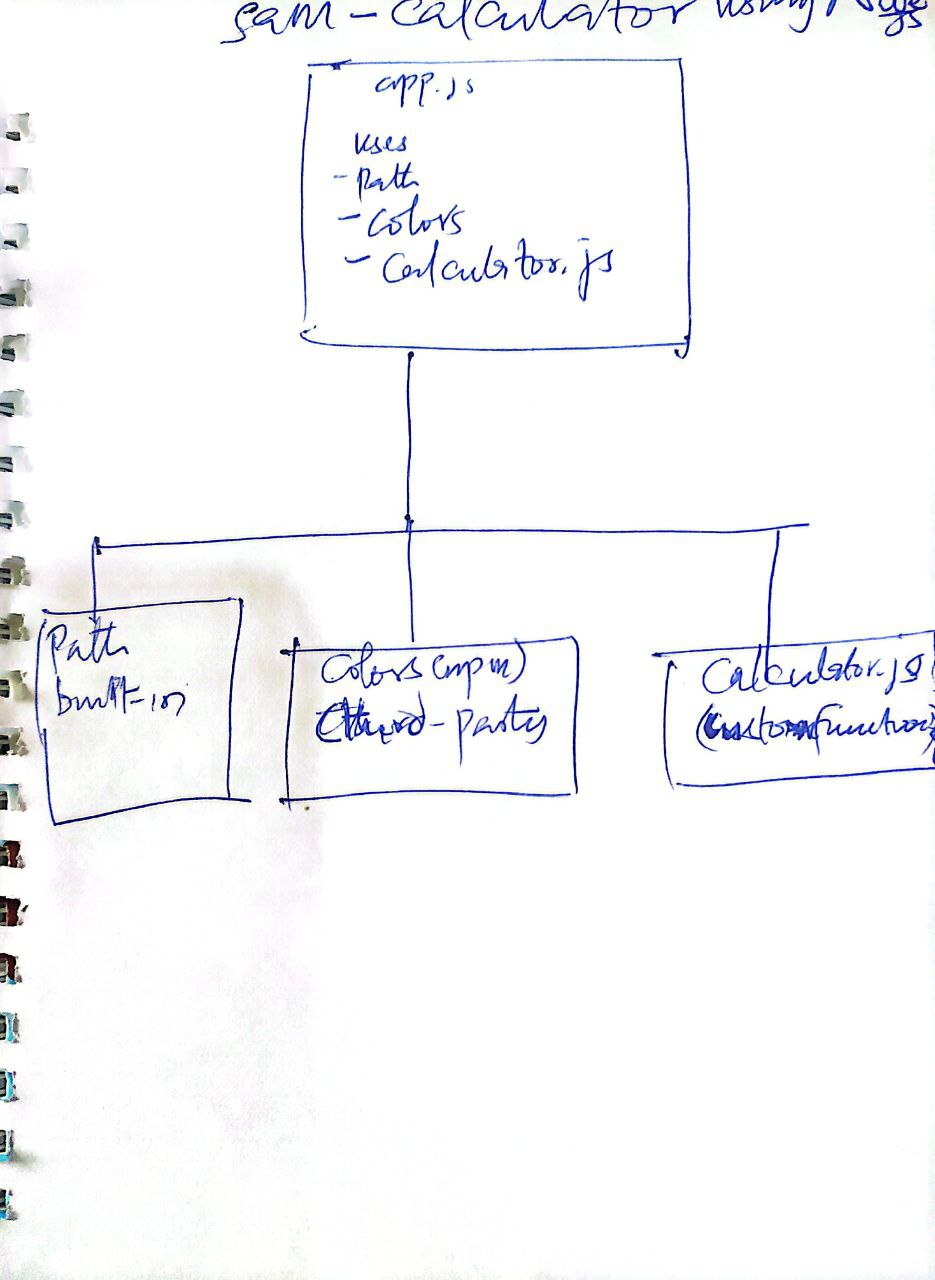 sam-Calculator using Node
js
app.js
uses
- Path
- Colors
- Calculator.js
Path
built-in
Colors (npm)
(third-party
Calculator.js
(customfunction)